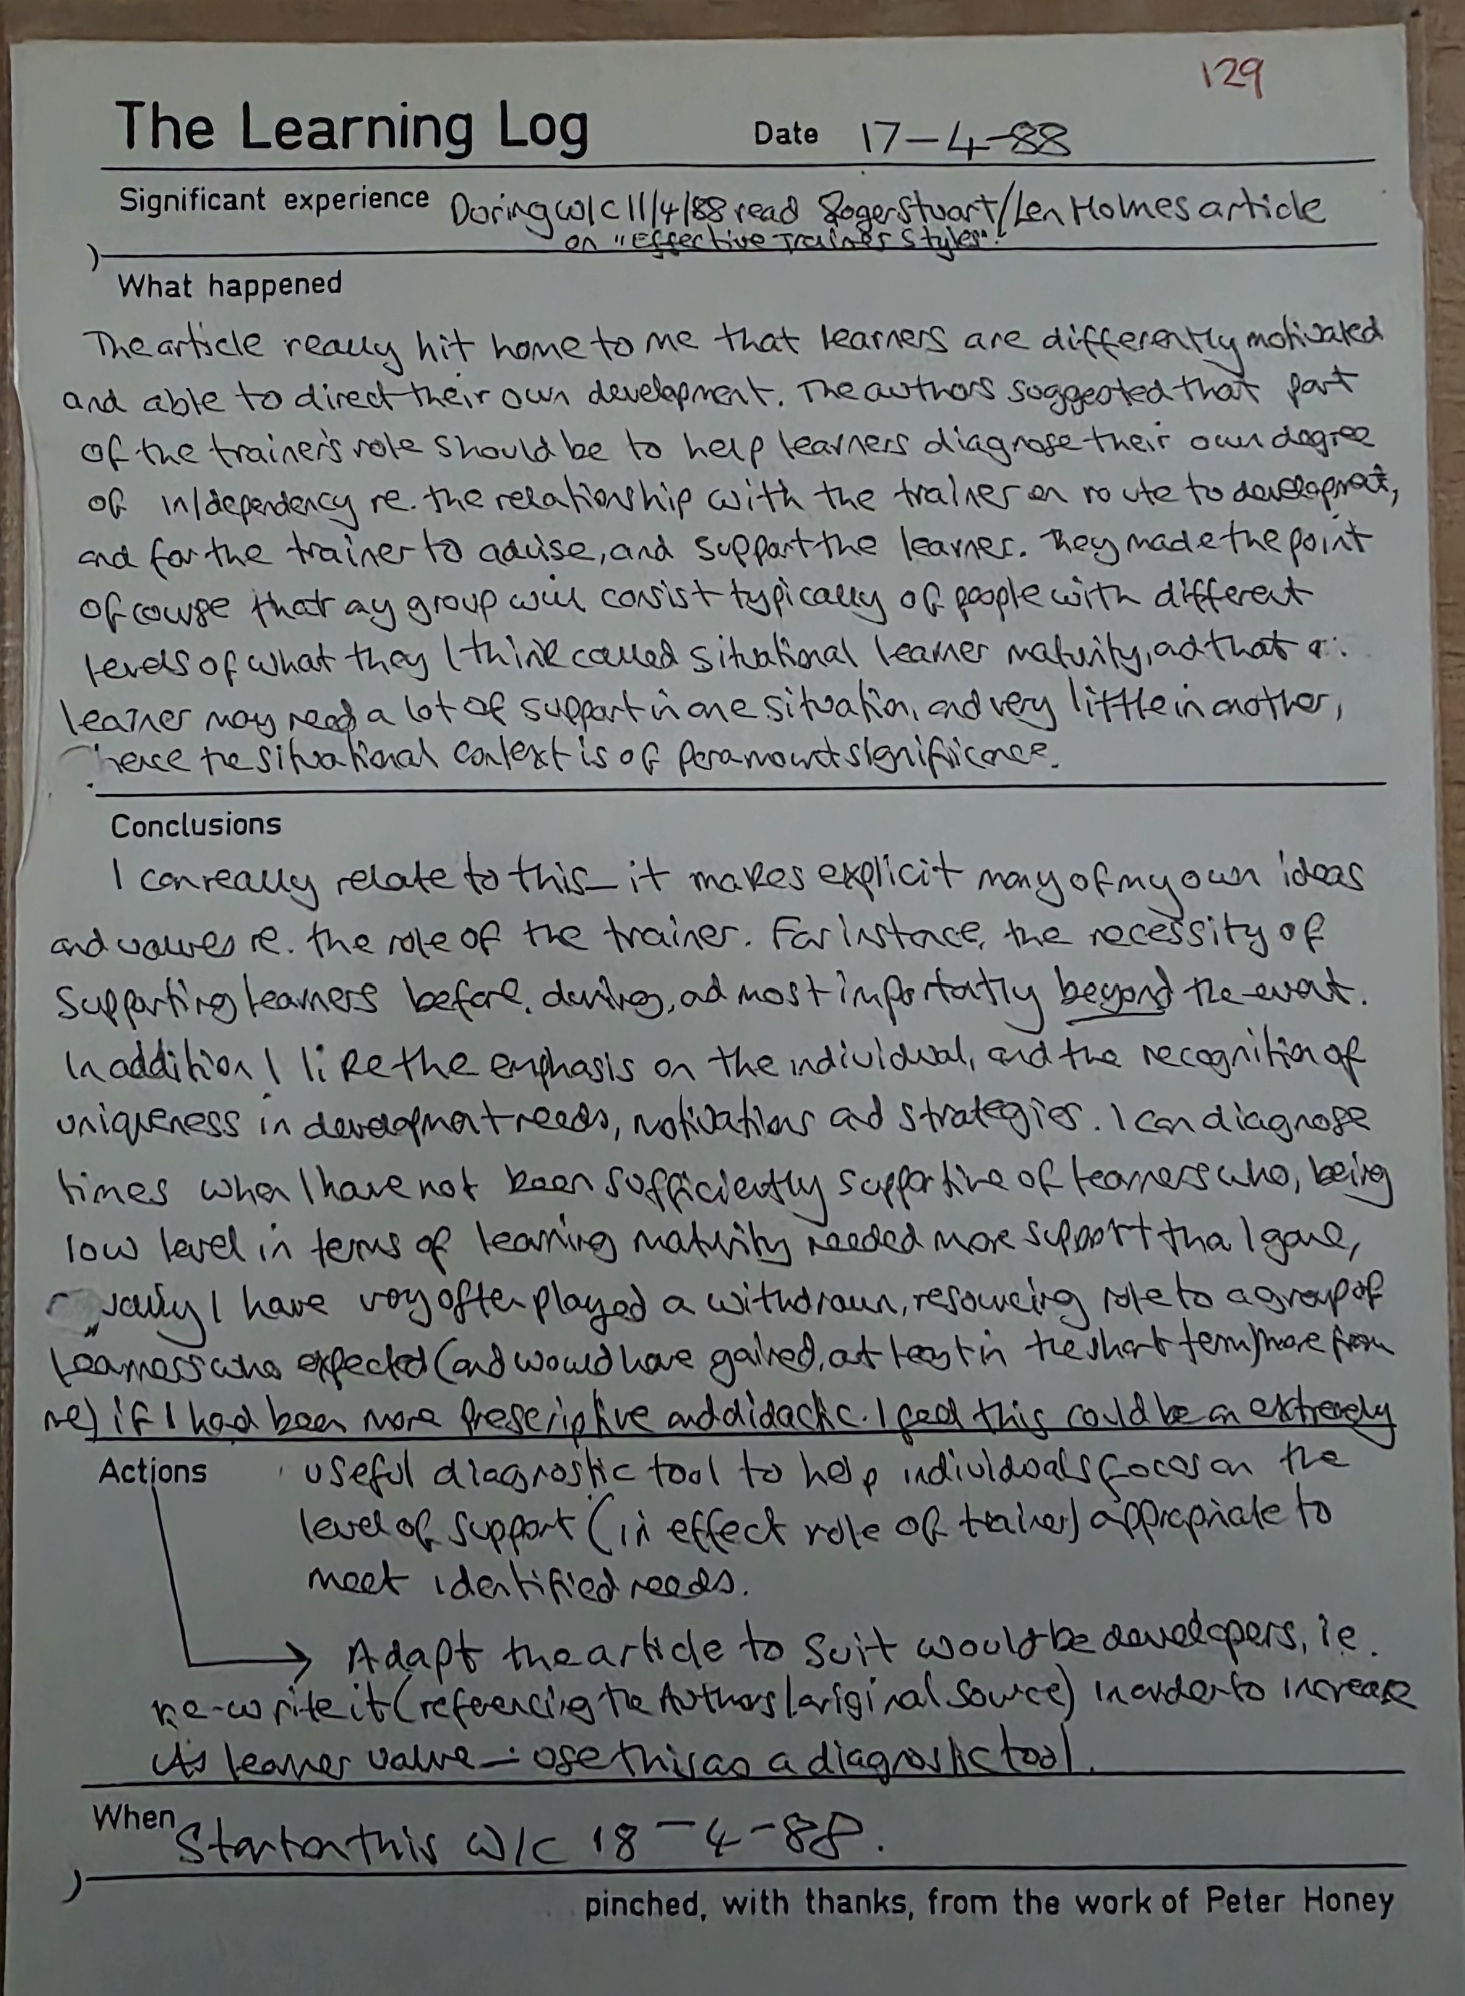 129
The Learning Log Date 17-4-88
Significant experience During w/c 11/4/88 read Roger Stuart/Len Holmes article
on "Effective Trainer Styles".
What happened
The article really hit home to me that learners are differently motivated
and able to direct their own development. The authors suggested that part
of the trainer's role should be to help learners diagnose their own degree
of in/dependency re. the relationship with the trainer on route to development,
and for the trainer to advise, and support the learner. They made the point
of course that any group will consist typically of people with different
levels of what they I think called situational learner maturity, and that a
learner may need a lot of support in one situation, and very little in another,
hence the situational context is of paramount significance.
Conclusions
I can really relate to this - it makes explicit many of my own ideas
and values re. the role of the trainer. For instance, the necessity of
supporting learners before, during, and most importantly beyond the event.
In addition I like the emphasis on the individual, and the recognition of
uniqueness in development needs, motivations and strategies. I can diagnose
times when I have not been sufficiently supportive of learners who, being
low level in terms of learning maturity needed more support than I gave,
I have very often played a withdrawn, resourcing role to a group of
learners who expected (and would have gained, at least in the short term) more from
me) if I had been more prescriptive and didactic. I feel this could be an extremely
Actions useful diagnostic tool to help individuals focus on the
level of support (in effect role of trainer) appropriate to
meet identified needs.
Adapt the article to suit would be developers, i.e.
re-write it (referencing the Authors/original source) in order to increase
its learner value - use this as a diagnostic tool.
When Start on this w/c 18-4-88.
pinched, with thanks, from the work of Peter Honey